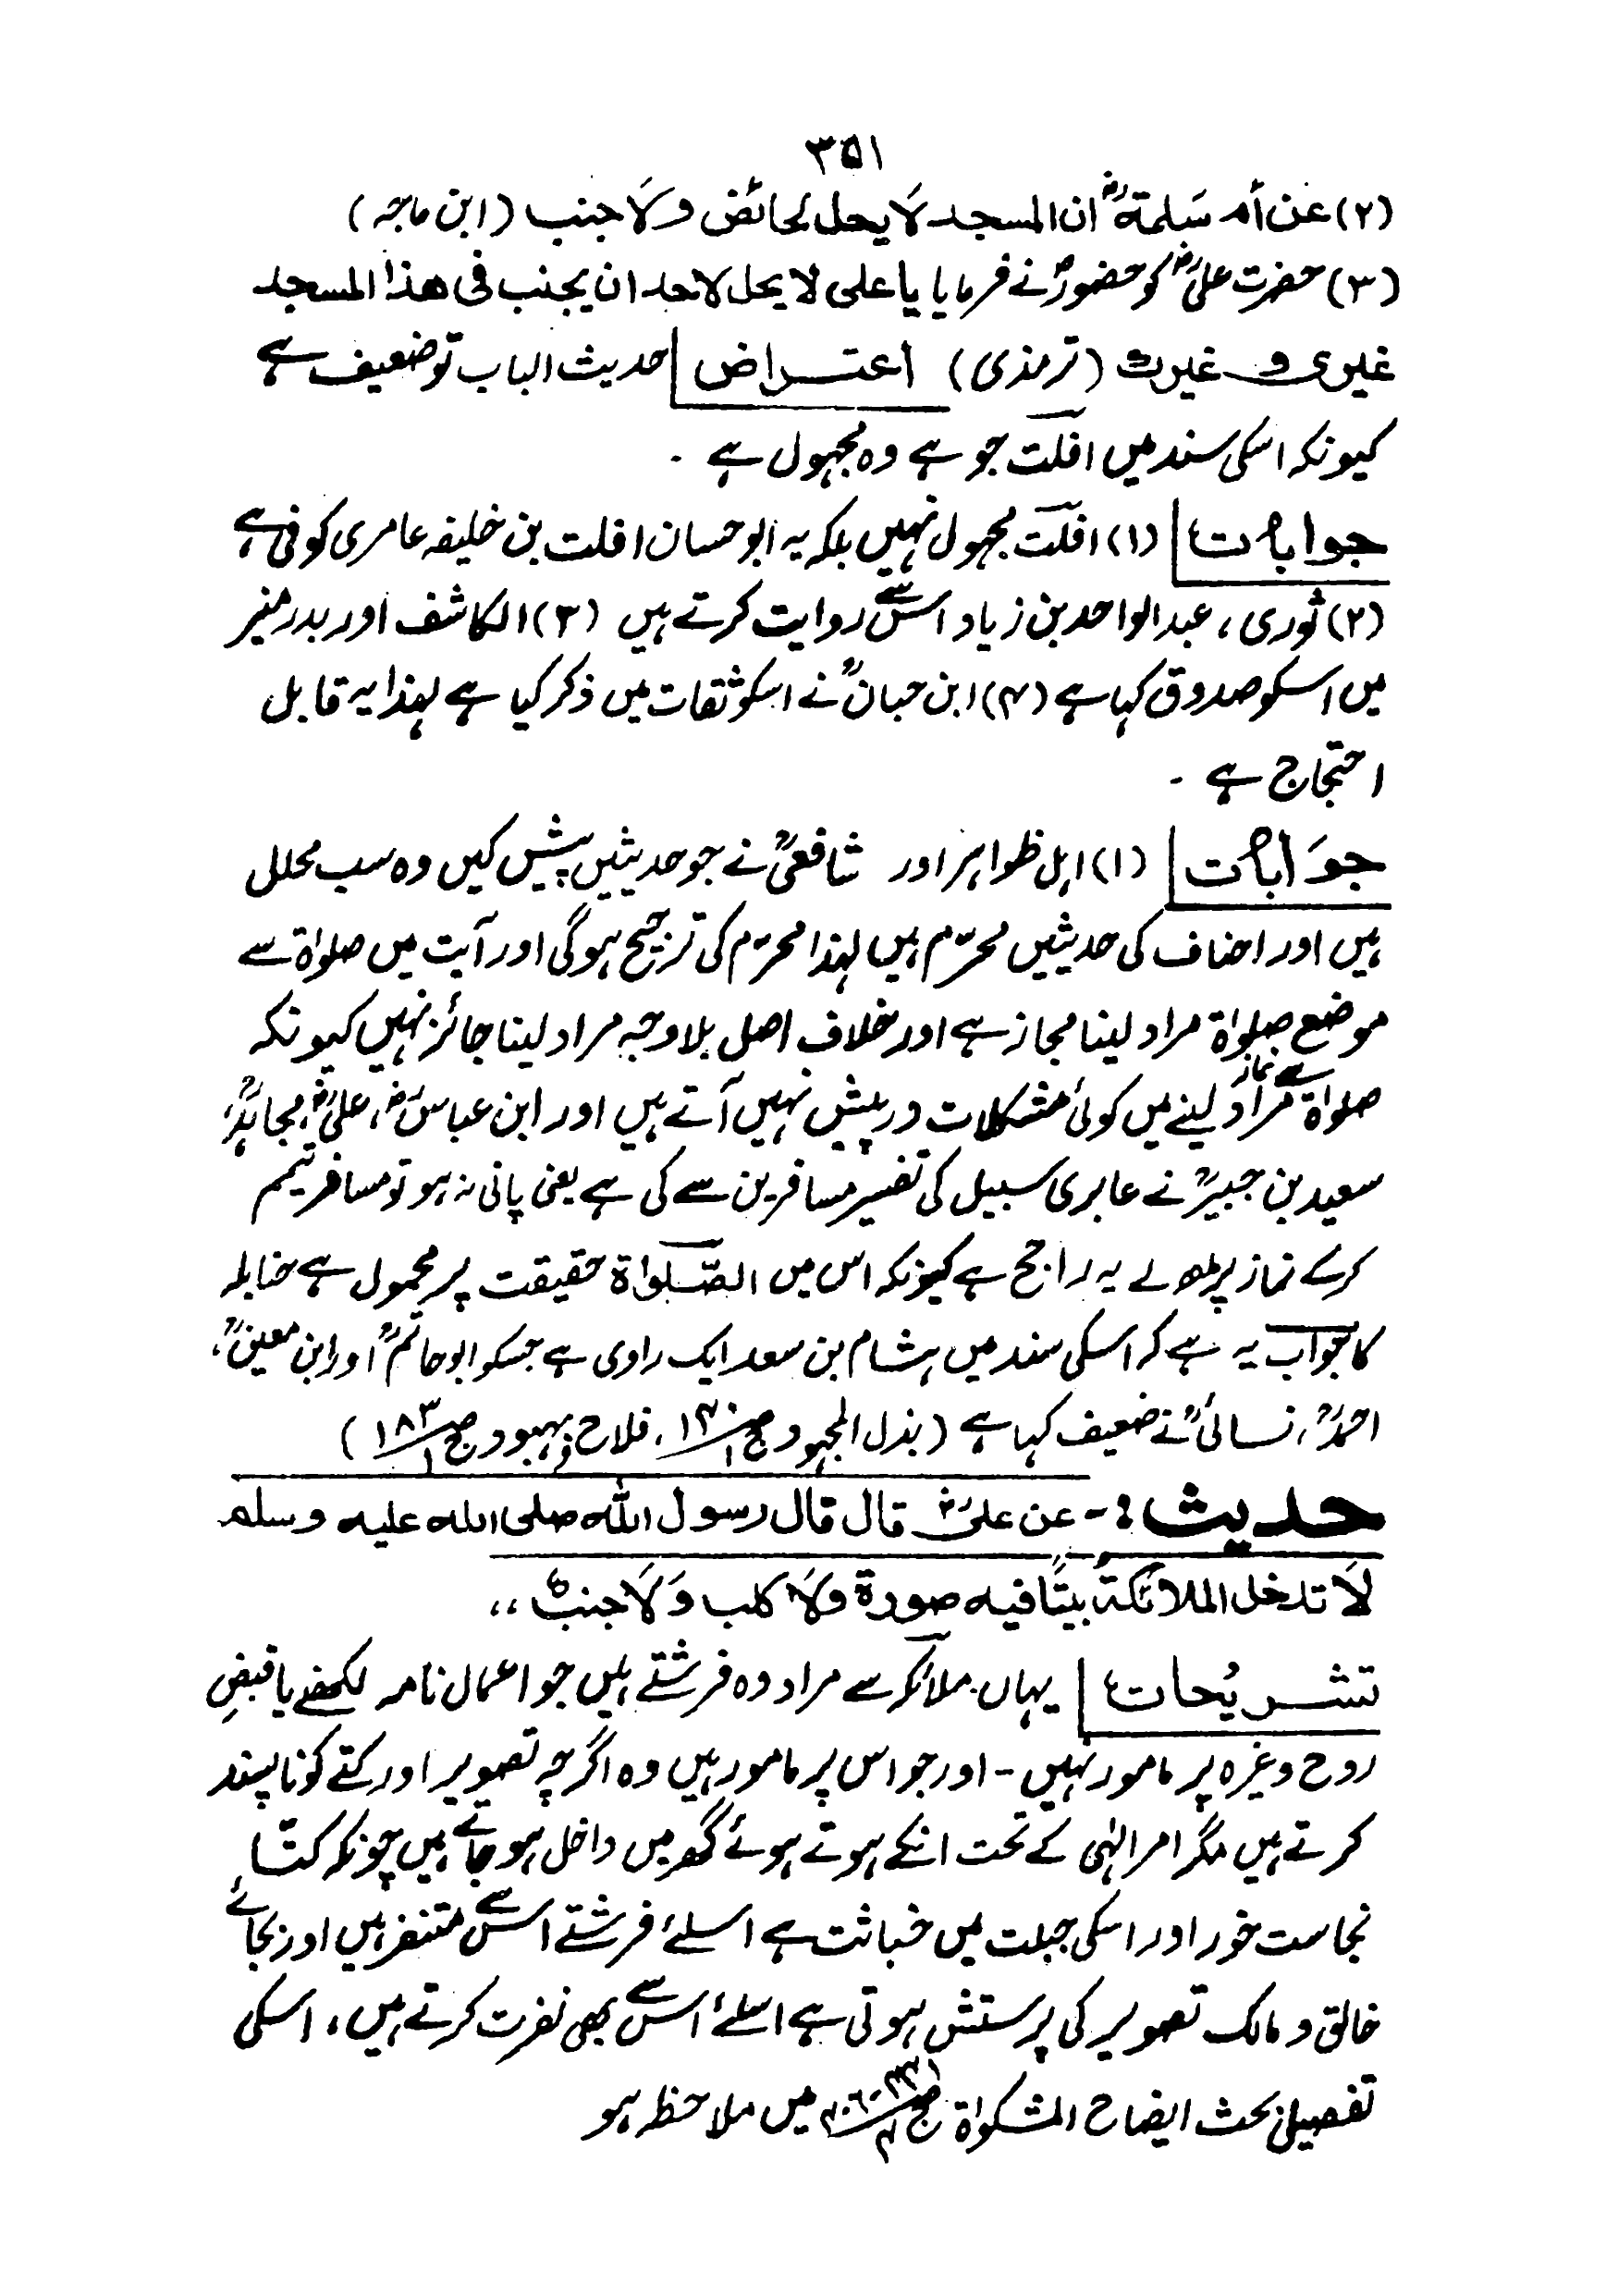 ۳۵۱
(۲) عن أم سَلمۃؓ ان المسجد لَا یحل لحائض ولَا جنب (ابن ماجہ)
(۳) حضرت علیؓ کو حضورؐ نے فرمایا یا علی لا یحل لاحد ان یجنب فی ھذا المسجد
غیری و غیرک (ترمذی) اعتراض حدیث الباب تو ضعیف ہے
کیونکہ اسکی سند میں افلت جو ہے وہ مجہول ہے ۔
جوابات (۱) افلت مجہول نہیں بلکہ یہ ابو حسان افلت بن خلیفہ عامری کوفی ہے
(۲) ثوری ، عبد الواحد بن زیاد اس سے روایت کرتے ہیں (۳) الکاشف اور بدر منیر
میں اسکو صدوق کہا ہے (۴) ابن حبانؒ نے اسکو ثقات میں ذکر کیا ہے لہٰذا یہ قابل
احتجاج ہے ۔
جوَابات (۱) اہل ظواہر اور شافعیؒ نے جو حدیثیں پیش کیں وہ سب محلل
ہیں اور احناف کی حدیثیں محرّم ہیں لہٰذا محرّم کی ترجیح ہوگی اور آیت میں صلوٰۃ سے
موضع صلوٰۃ مراد لینا مجاز ہے اور خلاف اصل بلا وجہ مراد لینا جائز نہیں کیونکہ
صلوٰۃ سے نماز مراد لینے میں کوئی مشکلات درپیش نہیں آتے ہیں اور ابن عباسؓ، علیؓ، مجاہدؒ،
سعید بن جبیرؒ نے عابری سبیل کی تفسیر مسافرین سے کی ہے یعنی پانی نہ ہو تو مسافر تیمم
کرکے نماز پڑھ لے یہ راجح ہے کیونکہ اس میں الصّلوٰۃ حقیقت پر محمول ہے حنابلہ
کا جواب یہ ہے کہ اسکی سند میں ہشام بن سعد ایک راوی ہے جسکو ابو حاتمؒ اور ابن معینؒ،
احمدؒ، نسائیؒ نے ضعیف کہا ہے (بذل المجہود ج۱ ص۱۴۰، فلاح و بہبود ج۱ ص۱۸۳)
حدیث :- عن علیؓ قال قال رسول اللّٰہ صلی اللہ علیہ وسلم
لَا تدخل الملائکۃُ بیتًا فیہ صورۃ ولَا کلب وَلَا جنبٌ ،،
تشریحات یہاں ملائکہ سے مراد وہ فرشتے ہیں جو اعمال نامہ لکھنے یا قبضِ
روح وغیرہ پر مامور نہیں ۔ اور جو اس پر مامور ہیں وہ اگرچہ تصویر اور کتے کو ناپسند
کرتے ہیں مگر امر الٰہی کے تحت انکے ہوتے ہوئے گھر میں داخل ہو جاتے ہیں چونکہ کتّا
نجاست خور اور اسکی جبلت میں خباثت ہے اسلئے فرشتے اس سے متنفر ہیں اور بجائے
خالق و مالک تصویر کی پرستش ہوتی ہے اسلئے اس سے بھی نفرت کرتے ہیں ، اسکی
تفصیلی بحث ایضاح المشکوٰۃ میں ملاحظہ ہو